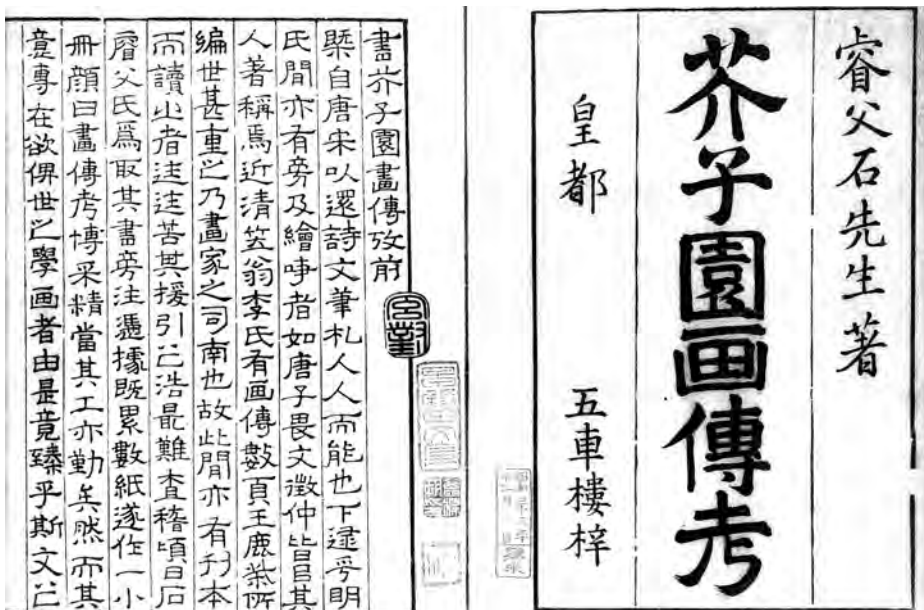 睿父石先生著
芥子園画傳考
皇都 五車樓梓
書芥子園畫傳攷前
槩自唐宋以還詩文筆札人人而能也下逮乎明
氏間亦有旁及繪事者如唐子畏文徵仲皆其
人著稱焉近清笠翁李氏有画傳數頁王鹿柴所
編世甚重之乃畫家之司南也故此間亦有刊本
而讀之者往往苦其援引之浩最難查稽頃日石
睿父氏爲取其書旁注憑據既累數紙遂作一小
冊顏曰畫傳考博采精當其工亦勤矣然而其
意專在欲俾世之學画者由是竟臻乎斯文之